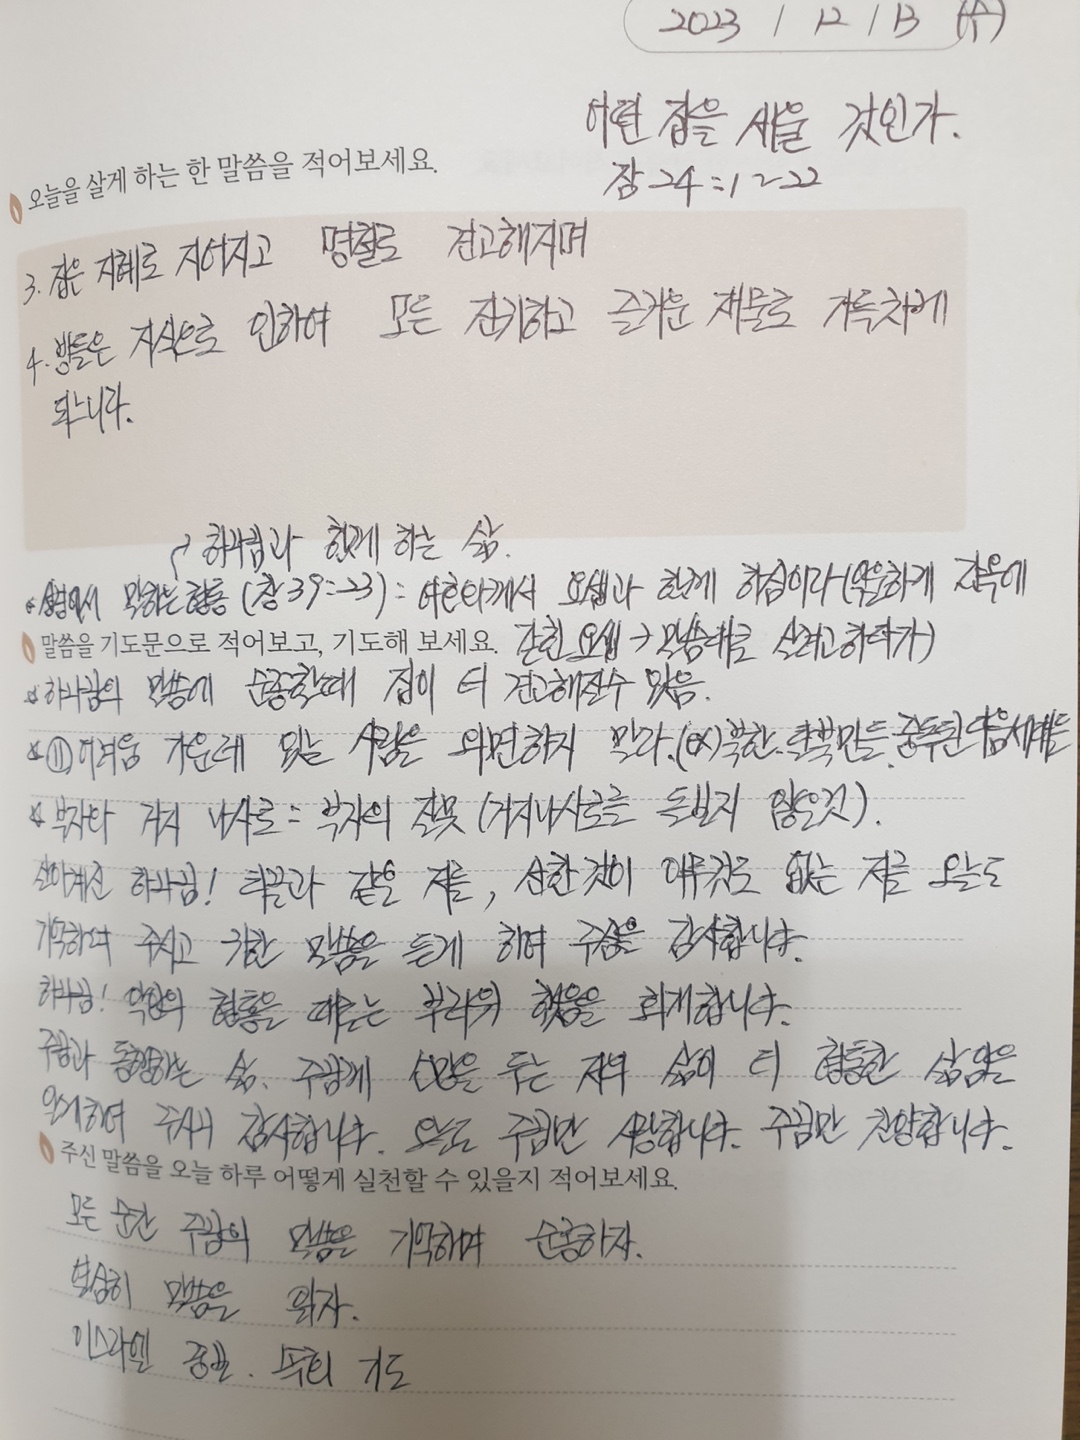 2023 / 12 / 13 (수)
어떤 집을 세울 것인가.
잠 24:1~22
오늘을 살게 하는 한 말씀을 적어보세요.
3. 집은 지혜로 지어지고 명철로 견고해지며
4. 방들은 지식으로 인하여 모든 진기하고 즐거운 재물로 가득차게
되느니라.
하나님과 함께 하는 삶.
* 성경에서 말하는 형통 (창 39:23) : 여호와께서 요셉과 함께 하심이라 (억울하게 감옥에
갇힌 요셉 → 말씀대로 살려고 하다가)
말씀을 기도문으로 적어보고, 기도해 보세요.
* 하나님의 말씀에 순종할때 집이 더 견고해질수 있음.
* ⑪ 어려움 가운데 있는 사람을 외면하지 말라. (ex) 북한. 탈북민들. 중독된 다음세대들
* 부자와 거지 나사로 : 부자의 잘못 (거지나사로를 돌보지 않은것).
살아계신 하나님! 티끌과 같은 저를, 선한것이 아무것도 없는 저를 오늘도
기억하여 주시고 귀한 말씀을 듣게 하여 주심을 감사합니다.
하나님! 악인의 형통을 때로는 부러워 했음을 회개합니다.
주님과 동행하는 삶. 주님께 소망을 두는 자의 삶이 더 형통한 삶임을
알게하여 주시니 감사합니다. 오늘도 주님만 사랑합니다. 주님만 찬양합니다.
주신 말씀을 오늘 하루 어떻게 실천할 수 있을지 적어보세요.
모든 순간 주님의 말씀을 기억하며 순종하자.
열심히 말씀을 읽자.
이스라엘 기도